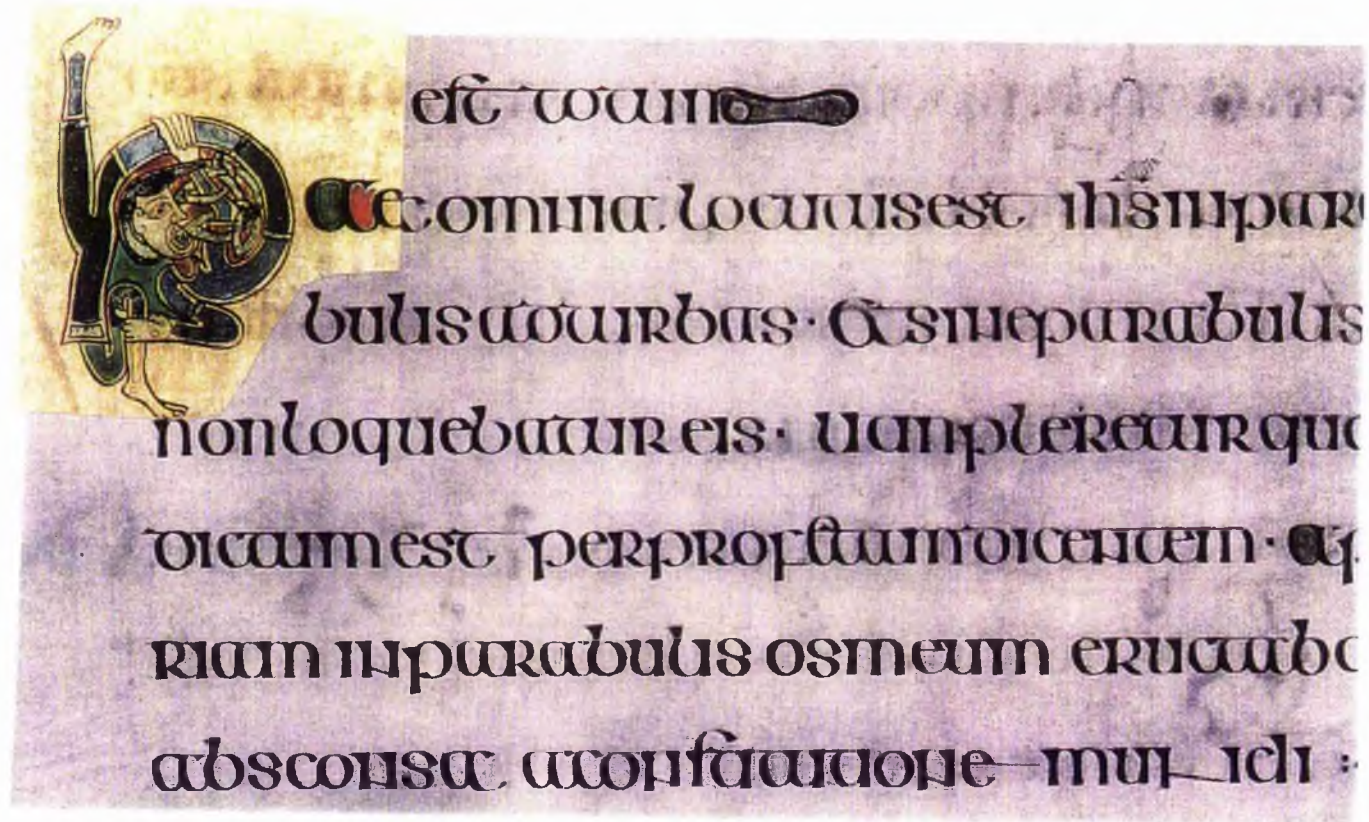 est totum
Haec omnia locutus est ihs in para
bulis ad turbas · Et sine parabulis
non loquebatur eis · ut inpleretur quo
dictum est per profetam dicentem · Ap
riam in parabulis os meum eructabo
absconsa a constitutione mundi :